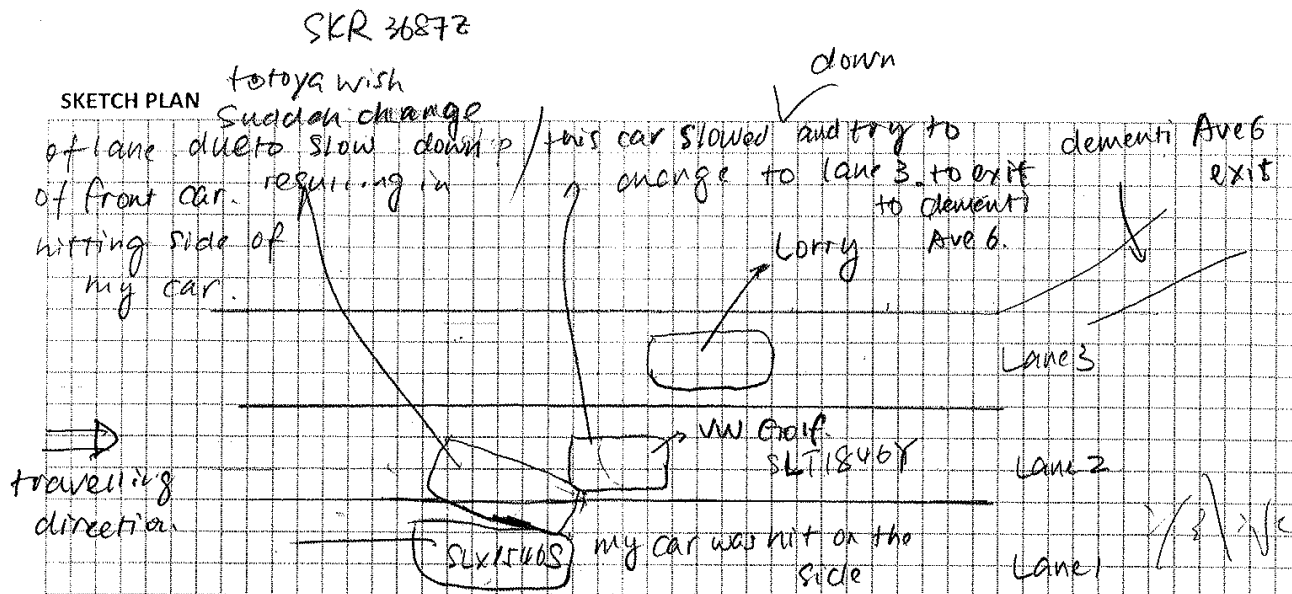 SKR 3687Z
totoya wish
SKETCH PLAN
Sudden change
of lane due to slow down
of front car. resulting in
hitting side of
my car.
down
this car slowed and try to
change to lane 3. to exit
to clementi
Ave 6.
clementi Ave 6
exit
Lorry
Lane 3
VW Golf.
SLT1846Y
Lane 2
travelling
direction.
SLX1546S
my car was hit on the
side
Lane 1